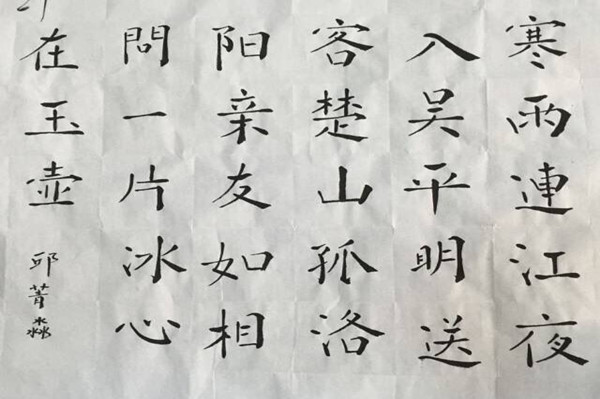 寒雨連江夜
入吴平明送
客楚山孤洛
阳亲友如相
問一片冰心
在玉壶
邱菁淼